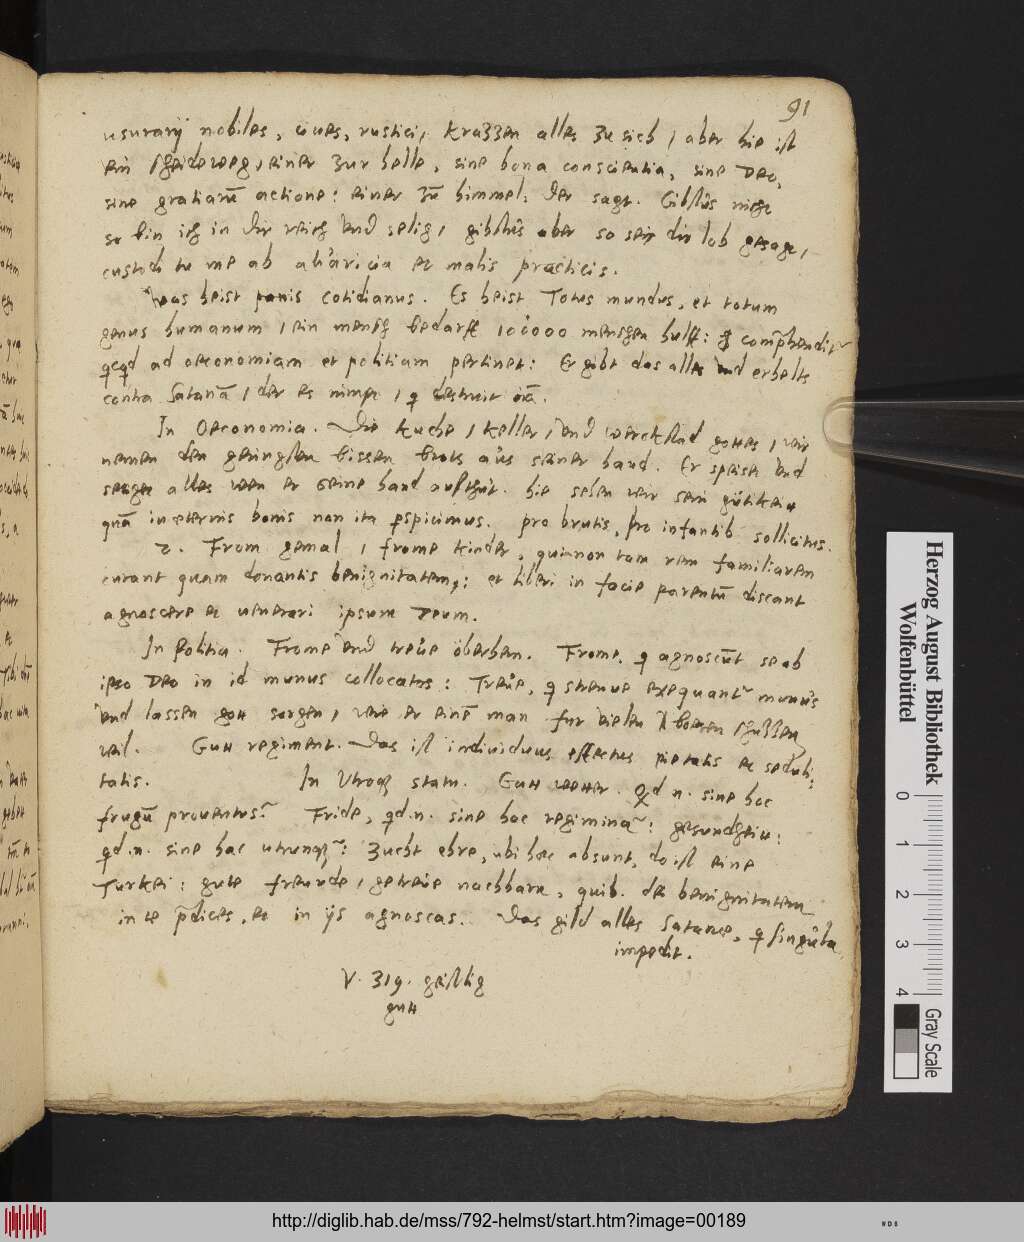 91
usurarij nobiles, ciues, rustici, krazzen alles zu sich / aber hie ist
ein scheideweg, einer zur helle, sine bona conscientia, sine Deo,
sine gratiarū actione: einer zū himmel, der sagt. Gibstūs
so bin ich in dir reich vnd selig, gibstūs aber so sein dir lob gesagt,
custodi tu me ab auaricia et malis practicis.
Was heist panis cotidianus. Es heist Totus mundus, et totum
genus humanum / ein mensch bedarff 100000 menschen hulff:
ad oeconomiam et politiam pertinet: Er gibt das alles vnd erhelts
contra Satanā / der es nimpt / q destruit oīa.
In Oeconomia. Die kuche / keller / vnd gottes / wir
nemen den geringsten bissen brots aūs seiner hand. Er speiset vnd
alles wen er seine hand aufthūt. hie sehen wir sein gūtikeit
quā in æternis bonis non ita pspicimus. pro brutis, pro infantib sollicitus.
2. From gemal / frome kinder, qui non tam rem familiarem
curant quam donantis benignitatem: et liberi in facie parentū discant
agnoscere et uenerari ipsum Deum.
In politia. Frome vnd treūe öberhern. Frome, q agnoscūt se ab
ipso Deo in id munus collocatos: Treūe, q strenue exequant munūs
vnd lassen gott sorgen, wie er einē man fur vielen
weil. Gutt regiment. Das ist individuus effectus pietatis et seduli:
tatis. In Utroq statu. Gutt wetter. Qd n. sine hoc
frugū prouentus? Fride, qd.n. sine hoc regimina: gesundheitt:
qd.n. sine hac utrunq: Zucht ehre, ubi hæc absunt, do ist eine
Turkei: gute freunde, getreūe nachbarn, quib. de benignitatem
in te pdices, et in ijs agnoscas. Das gild alles Satanæ, q singūla
impedit.
V. 319. geistlig
gutt
Herzog August Bibliothek
Wolfenbüttel
0 1 2 3 4
Gray Scale
http://diglib.hab.de/mss/792-helmst/start.htm?image=00189